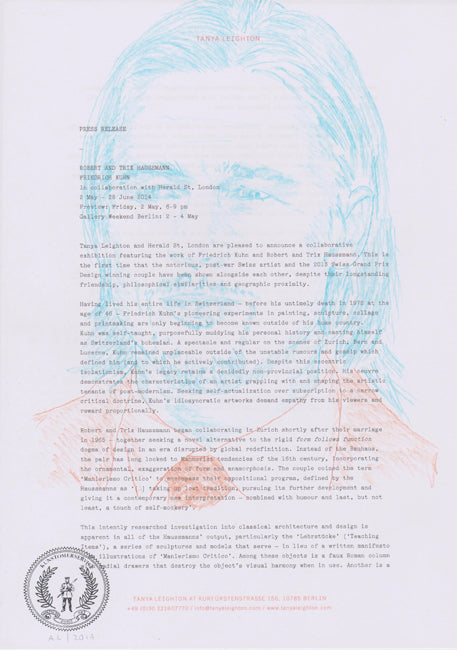 TANYA LEIGHTON
PRESS RELEASE
ROBERT AND TRIX HAUSSMANN
FRIEDRICH KUHN
In collaboration with Herald St, London
2 May - 28 June 2014
Preview: Friday, 2 May, 6-9 pm
Gallery Weekend Berlin: 2 - 4 May
Tanya Leighton and Herald St, London are pleased to announce a collaborative
exhibition featuring the work of Friedrich Kuhn and Robert and Trix Haussmann. This is
the first time that the notorious, post-war Swiss artist and the 2013 Swiss Grand Prix
Design winning couple have been shown alongside each other, despite their longstanding
friendship, philosophical similarities and geographic proximity.
Having lived his entire life in Switzerland – before his untimely death in 1972 at the
age of 46 – Friedrich Kuhn's pioneering experiments in painting, sculpture, collage
and printmaking are only beginning to become known outside of his home country.
Kuhn was self-taught, purposefully modying his personal history and casting himself
as Switzerland's bohemian. A spectacle and regular on the scenes of Zurich, Bern and
Lucerne, Kuhn remained unplaceable outside of the unstable rumours and gossip which
defined him (and to which he actively contributed). Despite this eccentric
isolationism, Kuhn's legacy retains a decidedly non-provincial position. His oeuvre
demonstrates the characteristics of an artist grappling with and shaping the artistic
tenants of post-modernism. Seeking self-actualization over subscription to a narrow
critical doctrine, Kuhn's idiosyncratic artworks demand empathy from his viewers and
reward proportionally.
Robert and Trix Haussmann began collaborating in Zurich shortly after their marriage
in 1965 – together seeking a novel alternative to the rigid form follows function
dogma of design in an era disrupted by global redefinition. Instead of the Bauhaus,
the pair has long looked to Mannerist tendencies of the 16th century, incorporating
the ornamental, exaggeration of form and anamorphosis. The couple coined the term
'Manierismo Critico' to encompass their oppositional program, defined by the
Haussmanns as '(.) taking up lost tradition, pursuing its further development and
giving it a contemporary new interpretation – combined with humour and last, but not
least, a touch of self-mockery'.
This intently researched investigation into classical architecture and design is
apparent in all of the Haussmanns' output, particularly the 'Lehrstücke' ('Teaching
Items'), a series of sculptures and models that serve – in lieu of a written manifesto
illustrations of 'Manierismo Critico'. Among these objects is a faux Roman column
radial drawers that destroy the object's visual harmony when in use. Another is a
TANYA LEIGHTON AT KURFÜRSTENSTRASSE 156, 10785 BERLIN
+49 (0)30 221607770 / info@tanyaleighton.com / www.tanyaleighton.com
A L | 2014